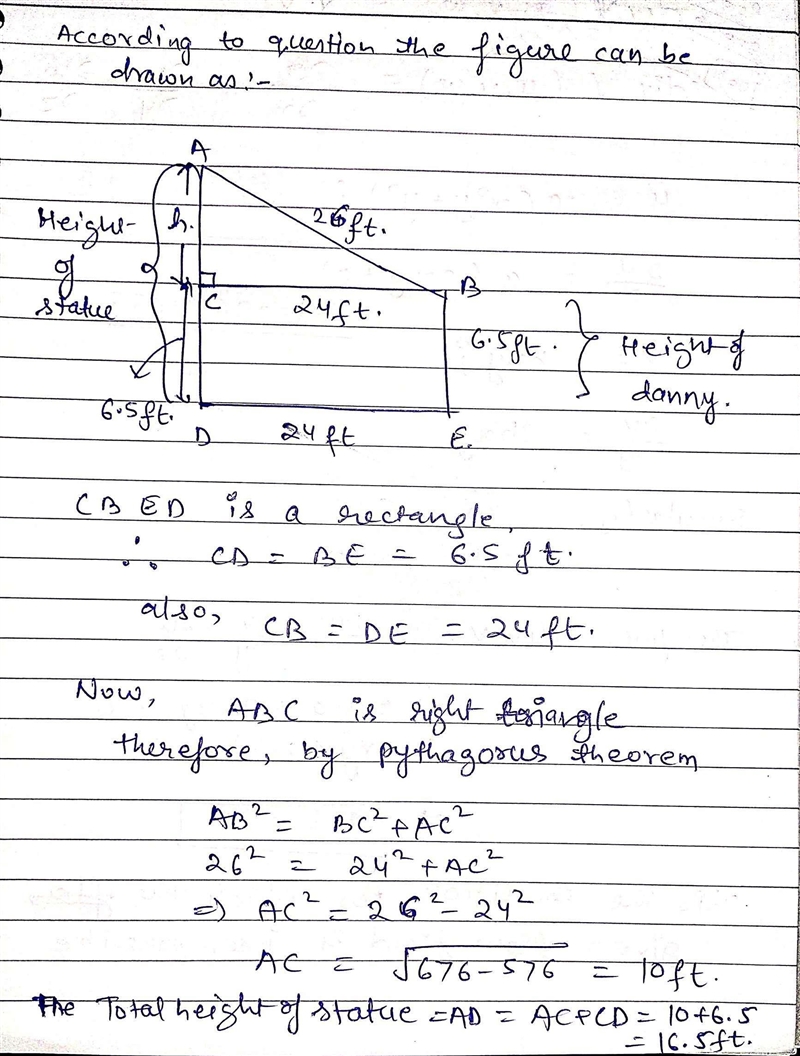 According to question the figure can be
drawn as :-
A
Height
of
statue
h.
26ft.
C
24ft.
B
6.5ft.
Height of
danny.
6.5ft.
D
24ft
E.
CBED is a rectangle,
∴ CD = BE = 6.5 ft.
also, CB = DE = 24ft.
Now, ABC is right triangle
therefore, by pythagorus theorem
AB² = BC² + AC²
26² = 24² + AC²
⇒ AC² = 26² - 24²
AC = √676-576 = 10ft.
The Total height of statue = AD = AC+CD = 10+6.5
= 16.5ft.